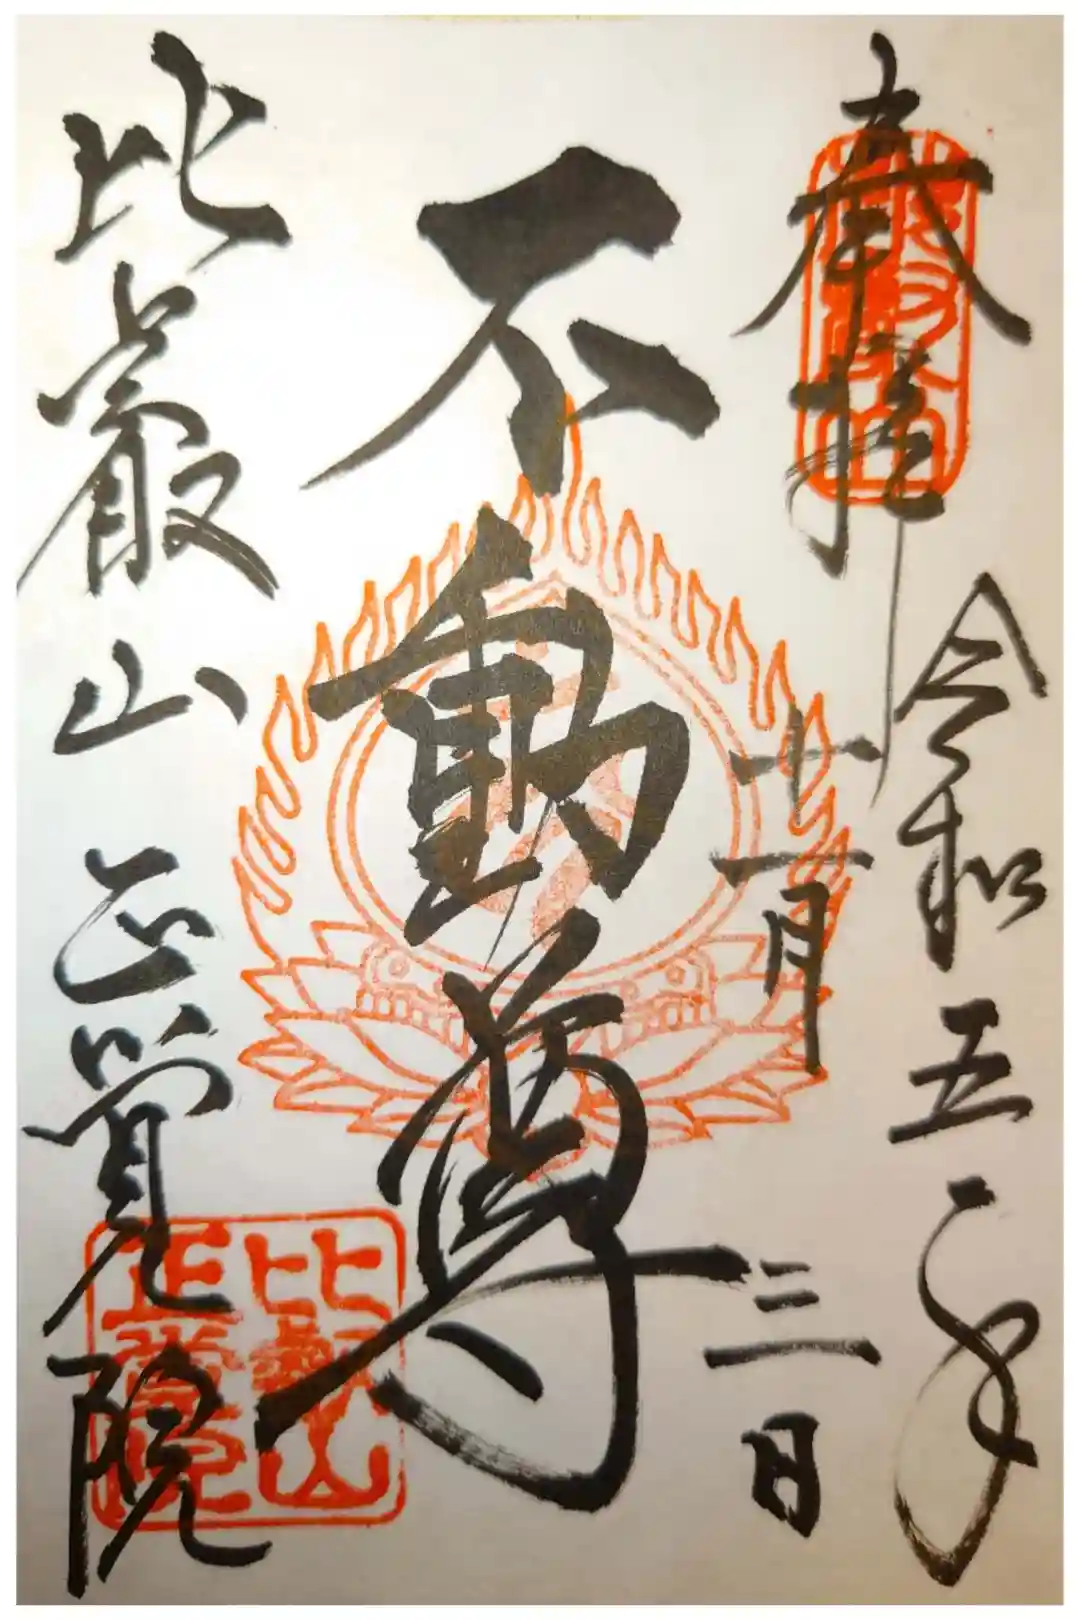 奉拝
令和五年
十一月
三日
不動尊
比叡山正覚院
比叡山
正覚院